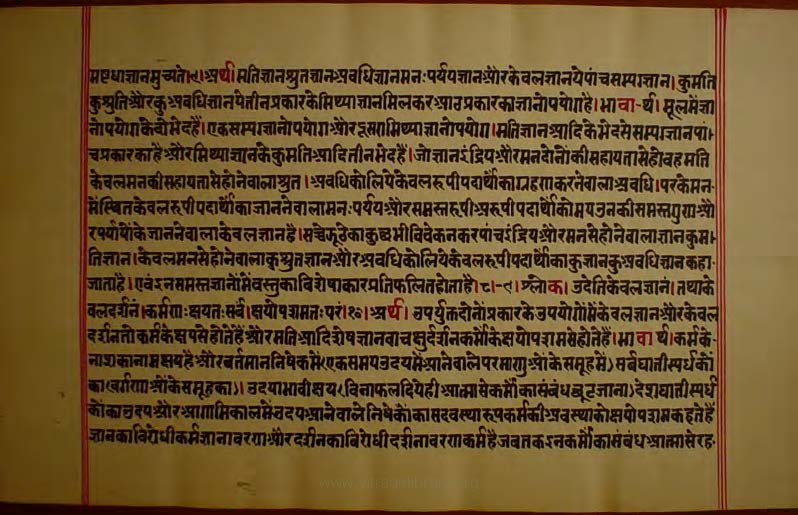 मष्टधाज्ञानमुच्यते।९।अर्थ। मतिज्ञानश्रुतज्ञानअवधिज्ञानमनःपर्ययज्ञानऔरकेवलज्ञानयेपांचसम्यग्ज्ञान। कुमति
कुश्रुतिऔरकुअवधिज्ञानयेतीनप्रकारकेमिथ्याज्ञानमिलकरआठप्रकारकाज्ञानोपयोगहै। भावार्थ। मूलमेंज्ञा
नोपयोगकेदोभेदहैं।एकसम्यग्ज्ञानोपयोगऔरदूसरामिथ्याज्ञानोपयोग। मतिज्ञानआदिकेभेदसेसम्यग्ज्ञानपां।
चप्रकारकाहैऔरमिथ्याज्ञानकेकुमतिआदितीनभेदहैं। जोज्ञानइंद्रियऔरमनदोनोंकीसहायतासेहोवहमति
केवलमनकीसहायतासेहोनेवालाश्रुत। अवधिकोलियेकेवलरूपीपदार्थोंकाग्रहणकरनेवालाअवधि। परकेमन-
मेंस्थितकेवलरूपीपदार्थोंकाजाननेवालामनःपर्ययऔरसमस्तरूपीअरूपीपदार्थोंकोमयउनकीसमस्तगुणऔ
रपर्यायोंकेजाननेवालाकेवलज्ञानहै। सच्चेझूठेकाकुछभीविवेकनकरपांचइंद्रियऔरमनसेहोनेवालाज्ञानकुम।
तिज्ञान। केवलमनसेहोनेवालाकुश्रुतज्ञानऔरअवधिकोलियेकेवलरूपीपदार्थोंकाकुज्ञानकुअवधिज्ञानकहा-
जाताहै। एवंइनसमस्तज्ञानोंमेंवस्तुकाविशेषाकारप्रतिफलितहोताहै।८-९। श्लोक। उदेतिकेवलज्ञानं। तथाके
वलदर्शनं। कर्मणःक्षयतःसर्व। क्षयोपशमतःपरं।१०। अर्थ। उपर्युक्तदोनोंप्रकारकेउपयोगोंमेंकेवलज्ञानऔरकेवल
दर्शनतोकर्मकेक्षयसेहोतेहैंऔरमतिआदिशेषज्ञानवाचक्षुर्दर्शनकर्मोंकेक्षयोपशमसेहोतेहैं। भावार्थ। कर्मके-
नाशकानामक्षयहैऔरवर्तमाननिषेकमें(एकसमयउदयमेंआनेवालेपरमाणुओंकेसमूहमें) सर्वघातीस्पर्धकों
का(वर्गणाओंकेसमूहका)। उदयाभावीक्षय(विनाफलदियेहीआत्मासेकर्मोंकासंबंधछूटजाना) देशघातीस्पर्ध
कोंकाउदयऔरआगामिकालमेंउदयआनेवालेनिषेकोंकासदवस्थारूपकर्मकीअवस्थाकोक्षयोपशमकहतेहैं
ज्ञानकाविरोधीकर्मज्ञानावरणऔरदर्शनकाविरोधीदर्शनावरणकर्महैजबतकइनकर्मोंकासंबंधआत्मासेरह-